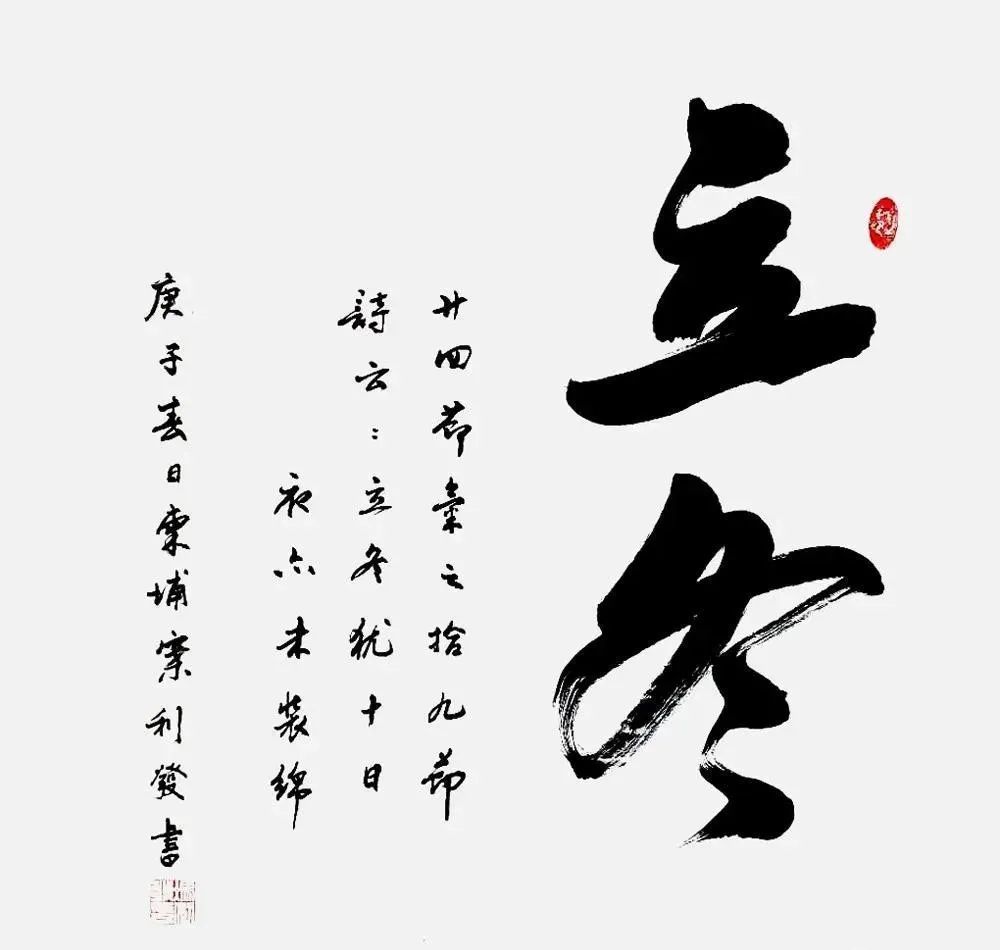 立冬
廿四節氣之拾九節
詩云：立冬猶十日
衣亦未裝綿
庚子春日柬埔寨利發書